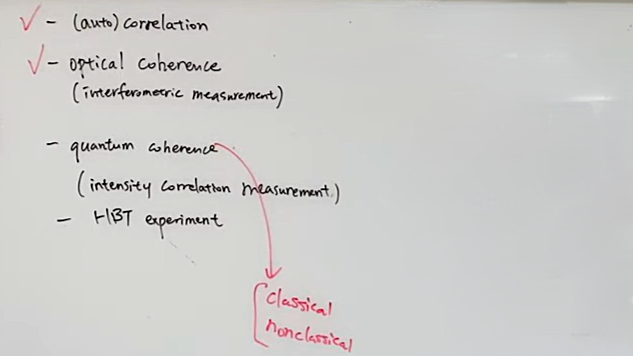 ✓ - (auto) correlation
✓ - optical coherence
(interferometric measurement)
- quantum coherence
(intensity correlation measurement)
- HBT experiment
classical
nonclassical